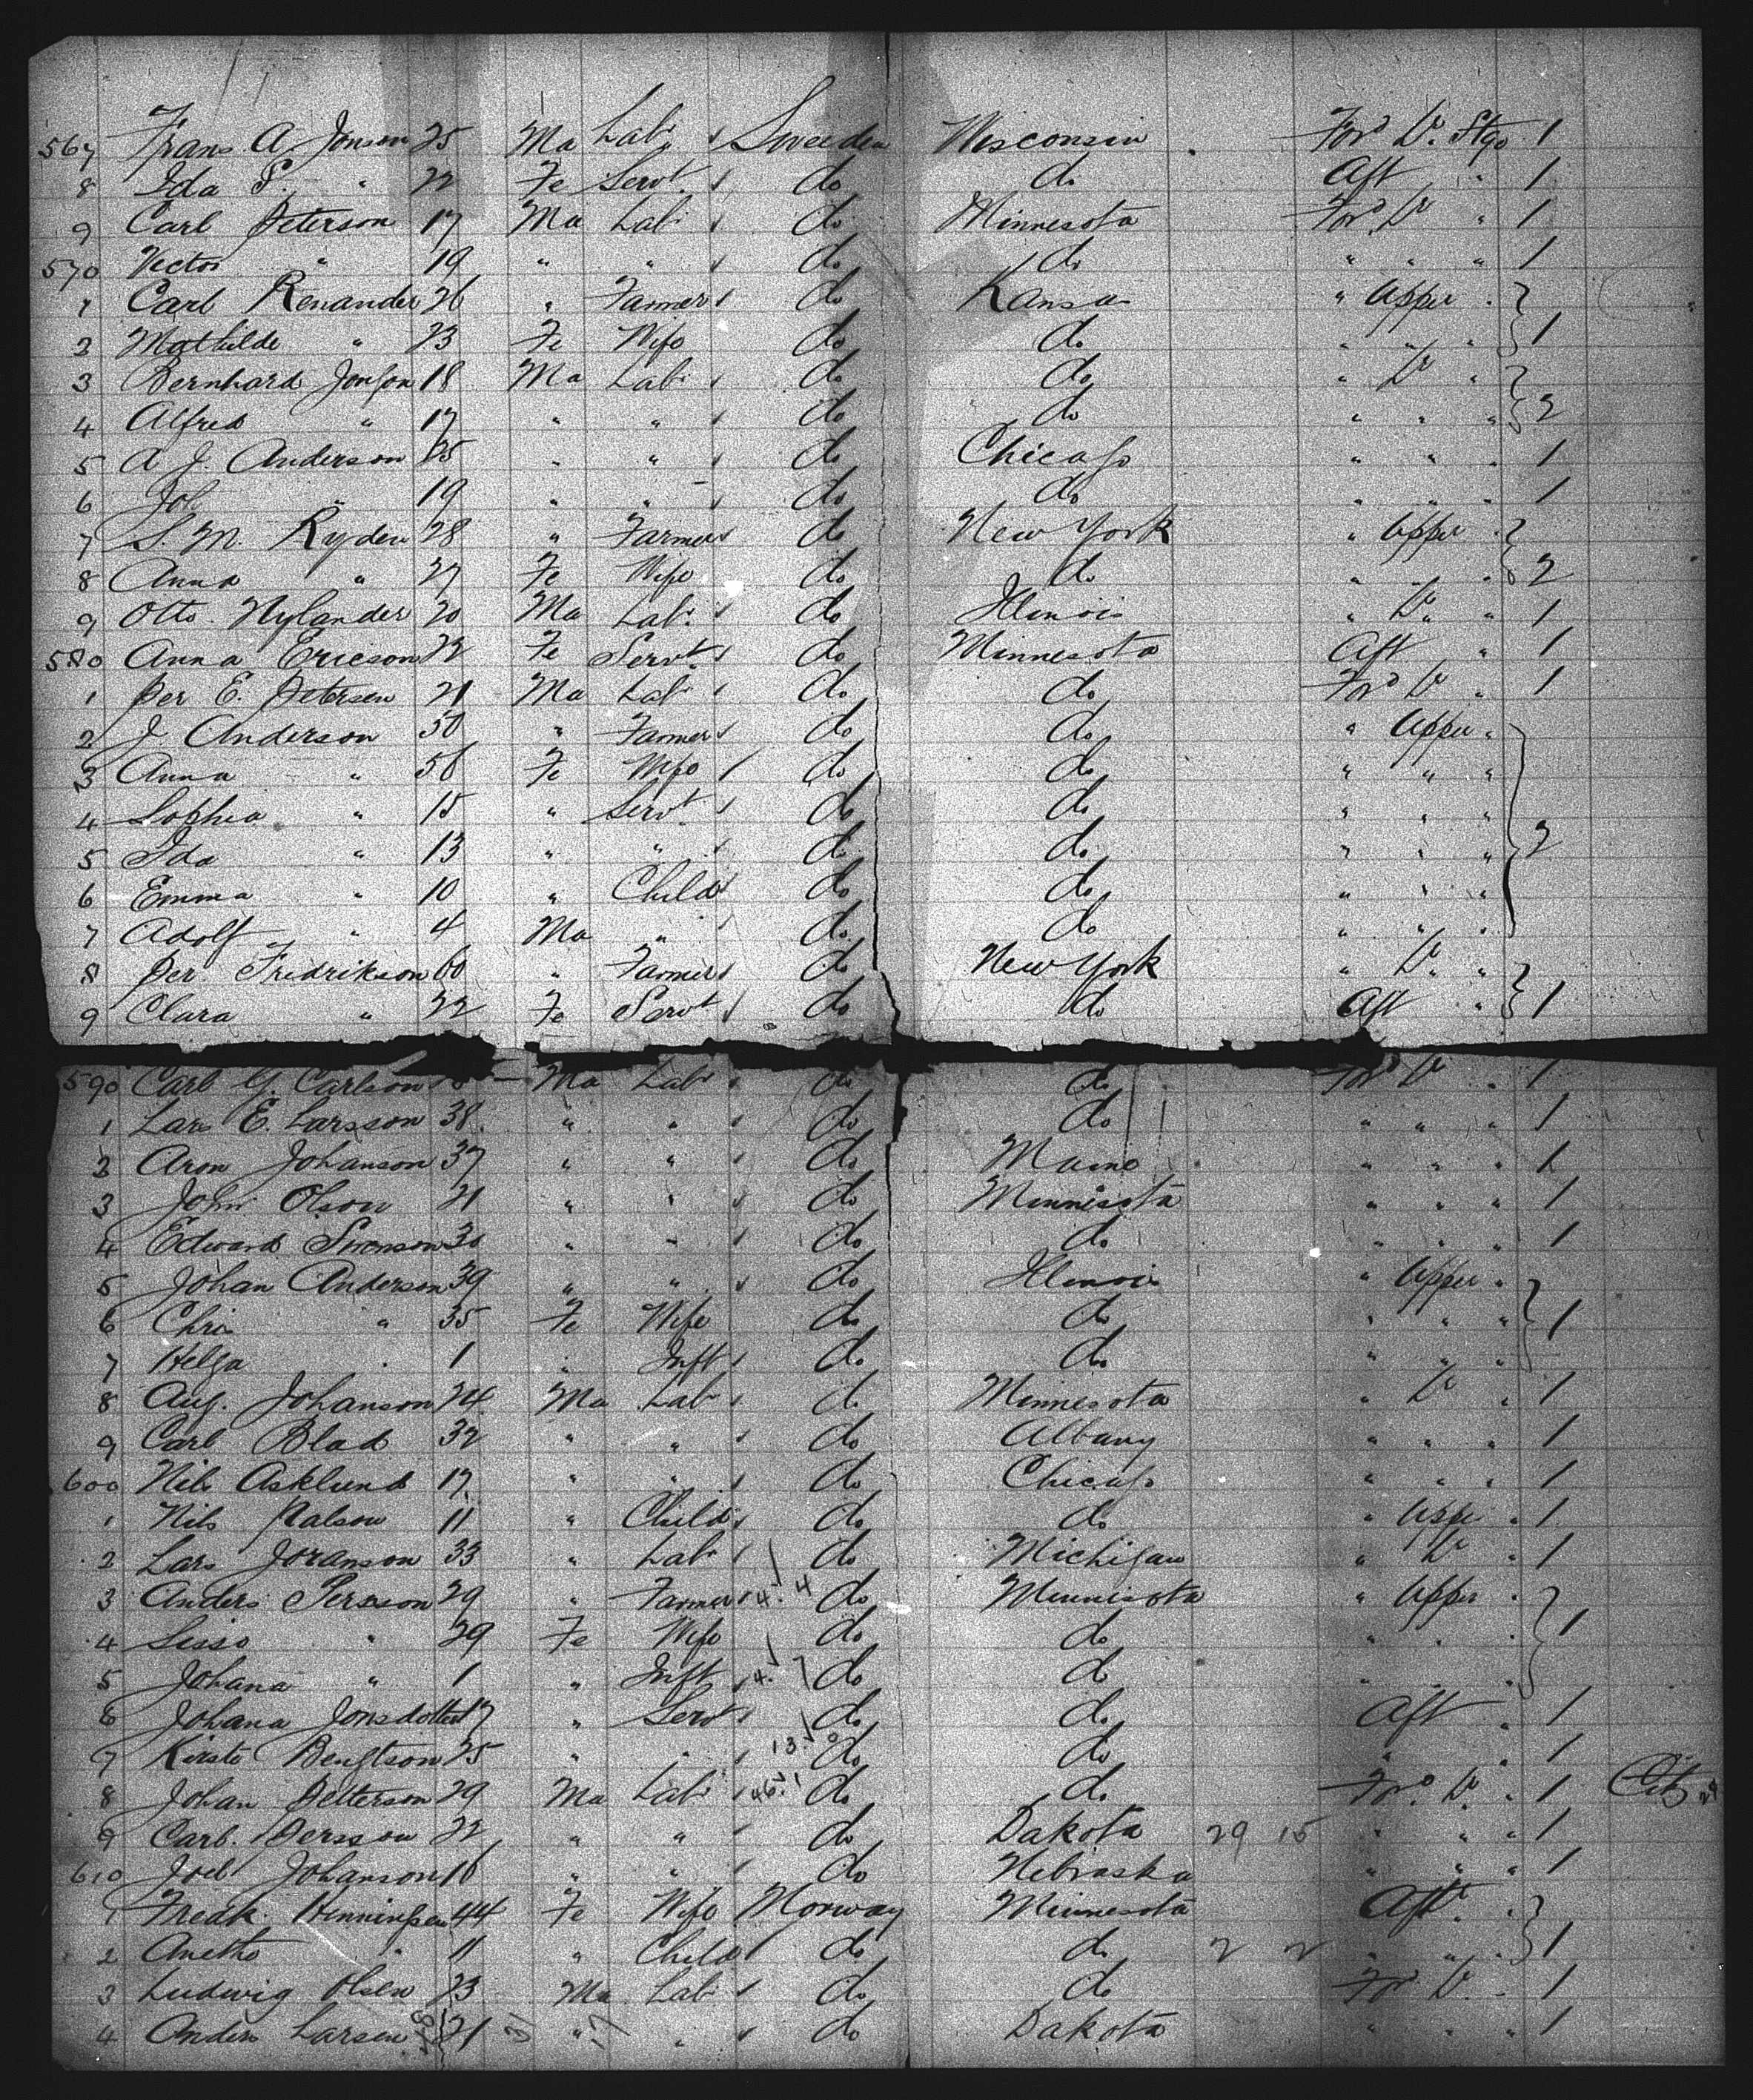 567 Frans A. Jonson 25 Ma Lab. Sweeden Wisconsin For'd Lr. Stge 1
8 Ida S. " 22 Fe Servt. do do Aft " 1
9 Carl Peterson 17 Ma Lab. do Minnesota For'd Lr " 1
570 Victor " 19 " " do do " " " 1
1 Carl Renander 26 " Farmer do Kansas " Upper "
2 Mathilde " 23 Fe Wife do do " " " 1
3 Bernhard Jonson 18 Ma Lab. do do " Lr "
4 Alfred " 17 " " do do " " " 2
5 A J. Anderson 25 " " do Chicago " " " 1
6 Joh " 19 " " do do " " " 1
7 S. M. Ryden 28 " Farmer do New York " Upper "
8 Anna " 27 Fe Wife do do " " " 2
9 Otto Nylander 20 Ma Lab. do Illinois " Lr. " 1
580 Anna Ericson 22 Fe Servt do Minnesota Aft " 1
1 Per E. Petersen 21 Ma Lab. do do For'd Lr " 1
2 J Anderson 50 " Farmer do do " Upper "
3 Anna " 56 Fe Wife do do " " "
4 Sophia " 15 " Servt. do do " " "
5 Ida " 13 " " do do " " " 2
6 Emma " 10 " Child do do " " "
7 Adolf " 4 Ma " do do " " "
8 Per Fredrikson 60 " Farmer do New York " Lr. "
9 Clara " 22 Fe Servt do do Aft " 1
590 Carl G. Carlson Ma Lab. do do For'd Lr " 1
1 Lars E. Larsson 38 " " do do " " " 1
2 Aron Johanson 37 " " do Maine " " " 1
3 John Olson 21 " " do Minnesota " " " 1
4 Edward Swenson 30 " " do do " " " 1
5 Johan Anderson 39 " " do Illinois " Upper "
6 Chris " 35 Fe Wife do do " " " 1
7 Helga " 1 " Inft do do " " "
8 Aug. Johanson 24 Ma Lab do Minnesota " Lr " 1
9 Carl Blad 32 " " do Albany " " " 1
600 Nils Asklund 17 " " do Chicago " " " 1
1 Nils Palson 11 " Child do do " Upper " 1
2 Lars Joranson 33 " Lab do Michigan " Lr " 1
3 Anders Persson 29 " Farmer 4. 4 do Minnisota " Upper "
4 Sisso " 29 Fe Wife do do " " " 1
5 Johana " 1 " Inft 4. 7 do do " " "
6 Johana Jonsdotter 17 " Servt do do Aft " 1
7 Kirste Bengtson 25 " " 13. 0 do do " " 1
8 Johan Petterson 29 Ma Lab 46. 1 do do For'd Lr. " 1
9 Carl Persson 22 " " do Dakota 29 15 " " " 1
610 Joel Johanson 16 " " do Nebraska " " " 1
1 Fredk. Henningsen 44 Fe Wife Norway Minnesota Aft "
2 Anetho " 11 " Child do do 2 2 " " " 1
3 Ludwig Olsen 23 Ma Lab do do For'd Lr. " 1
4 Anders Larsen 21 " " do Dakota " " " 1